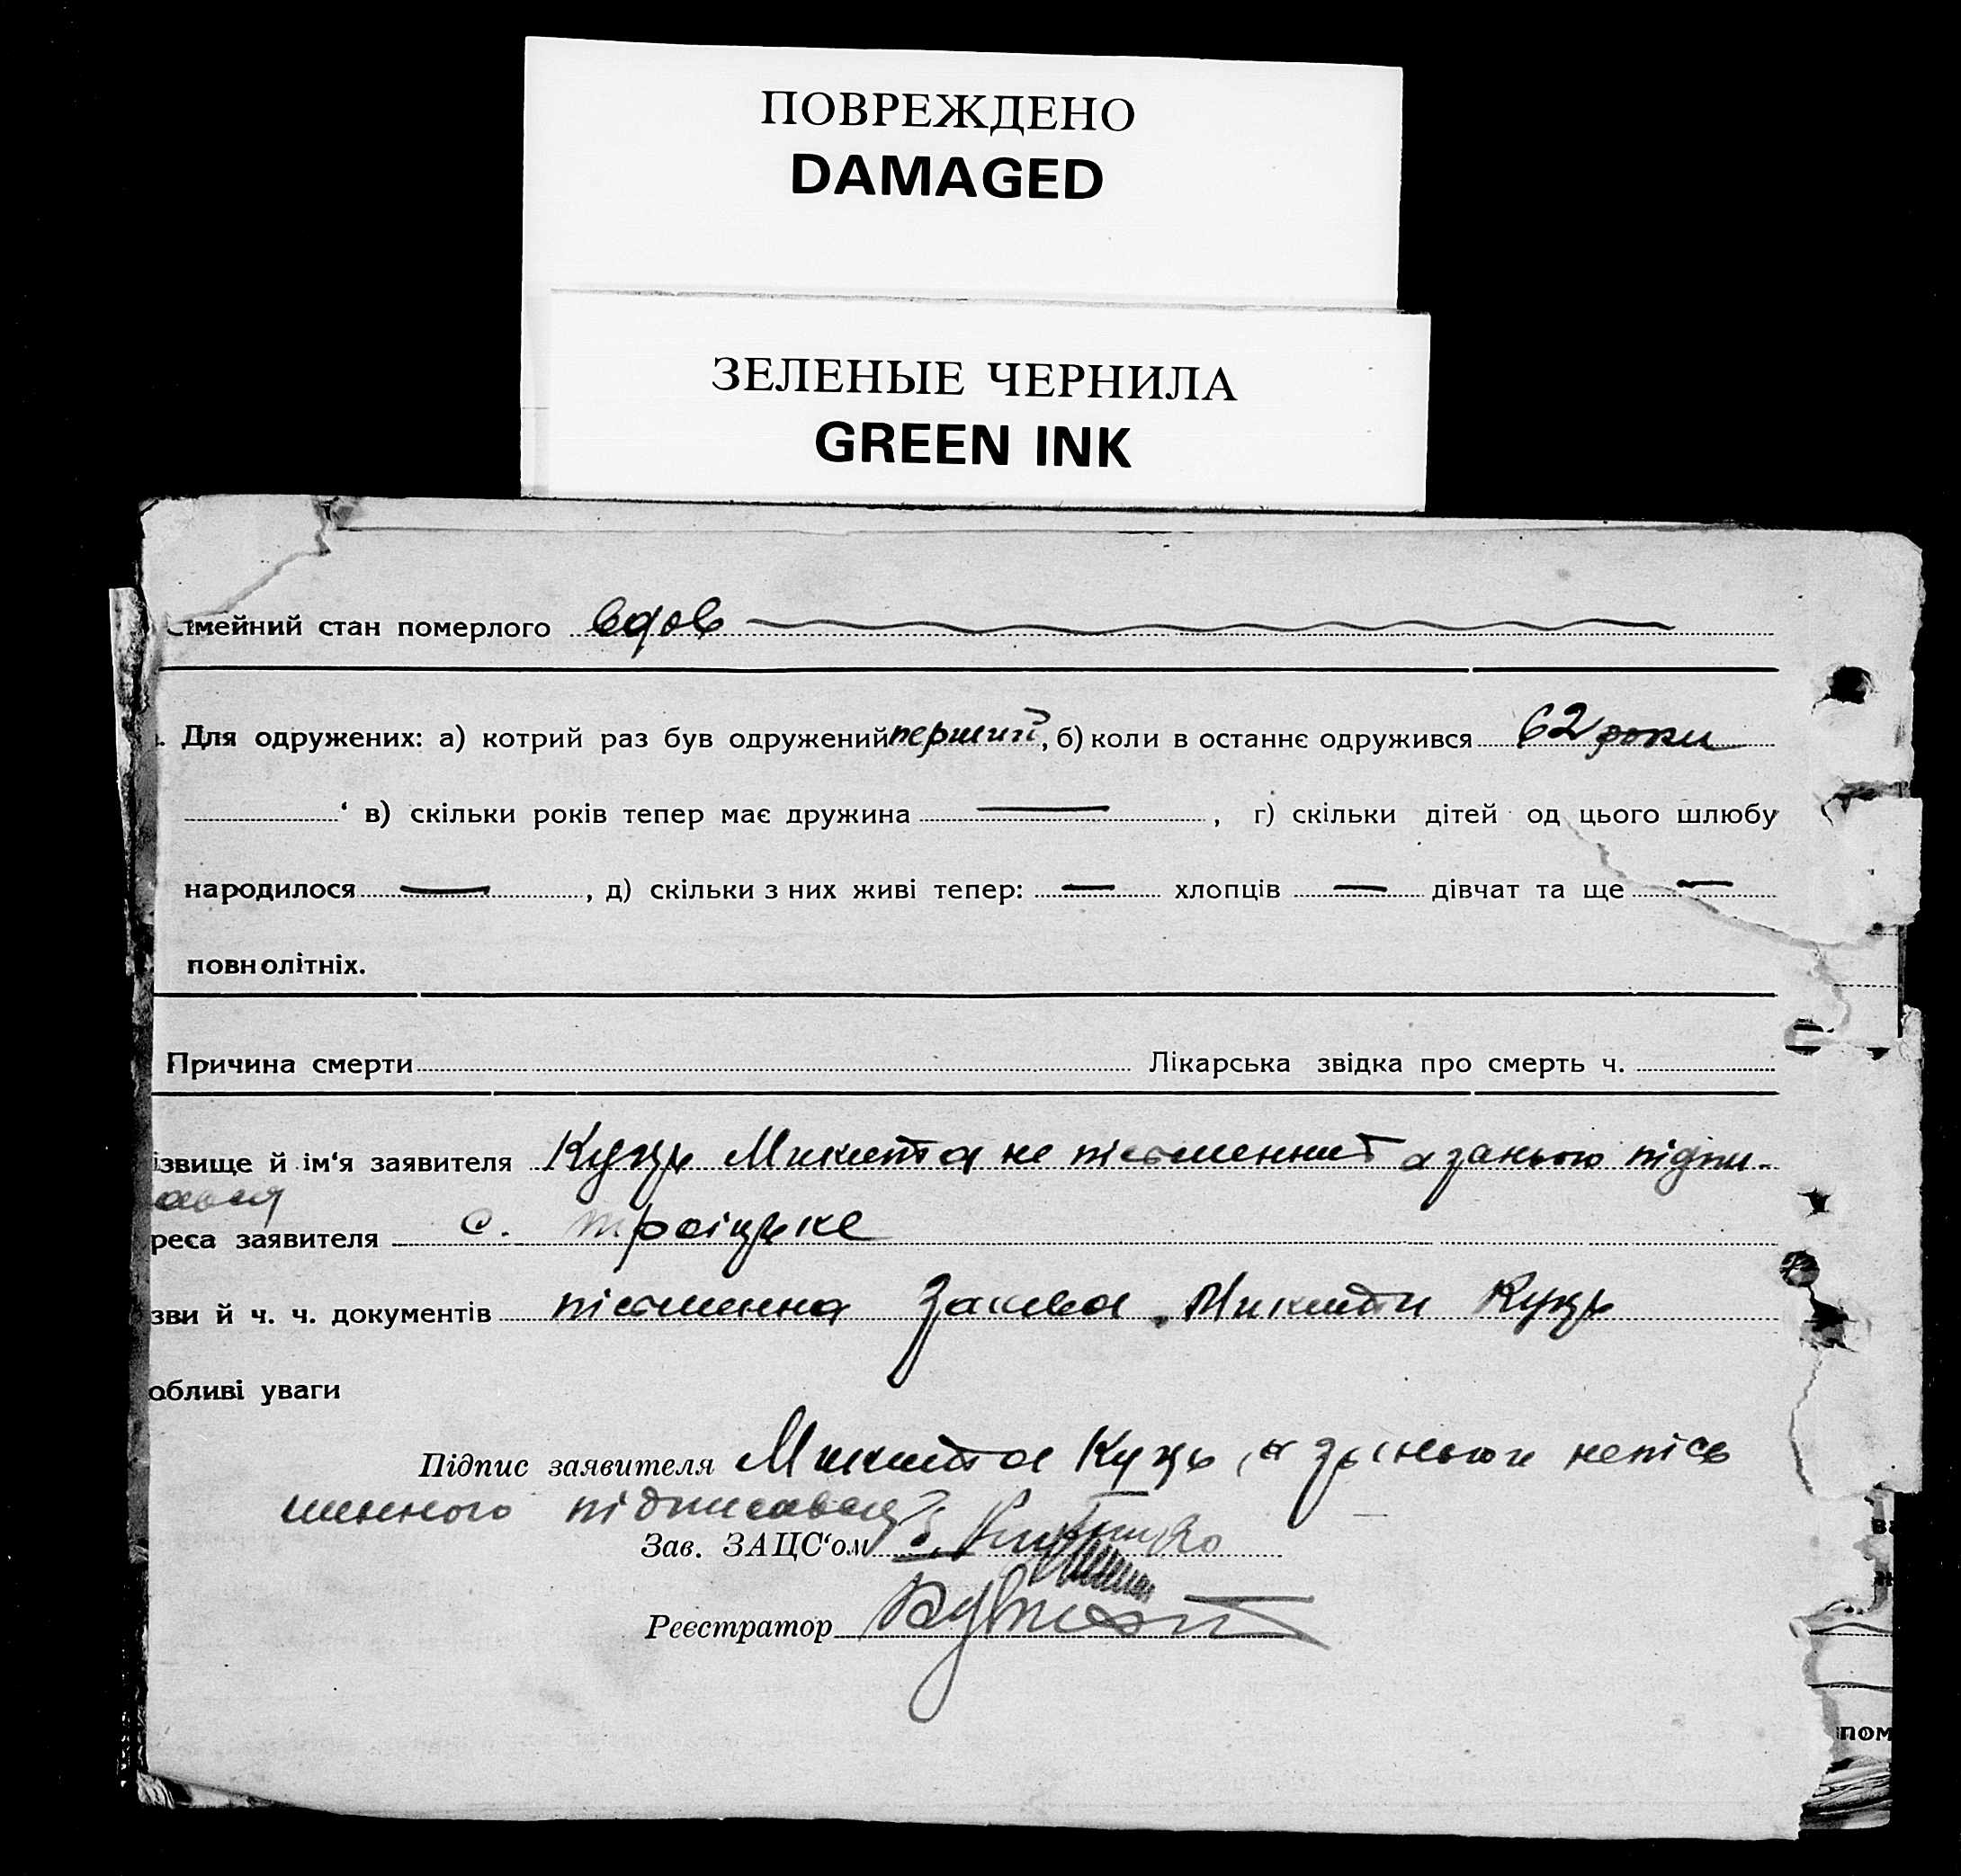 ПОВРЕЖДЕНО
DAMAGED
ЗЕЛЕНЫЕ ЧЕРНИЛА
GREEN INK
імейний стан померлого вдов
. Для одружених: а) котрий раз був одружений перший, б) коли в останнє одружився 62 роки
‘ в) скільки років тепер має дружина —, г) скільки дітей од цього шлюбу
народилося —, д) скільки з них живі тепер: — хлопців — дівчат та ще —
повнолітніх.
Причина смерти Лікарська звідка про смерть ч.
ізвище й ім‘я заявителя Куць Микита не пісьменний а за нього підпи-
сався
реса заявителя с. Троіцьке
зви й ч. ч. документів пісьменна заява Микити Куць
обливі уваги
Підпис заявителя Микита Куць, а за нього непісь
менного підписався
Зав. ЗАЦС‘ом
Реєстратор
пом